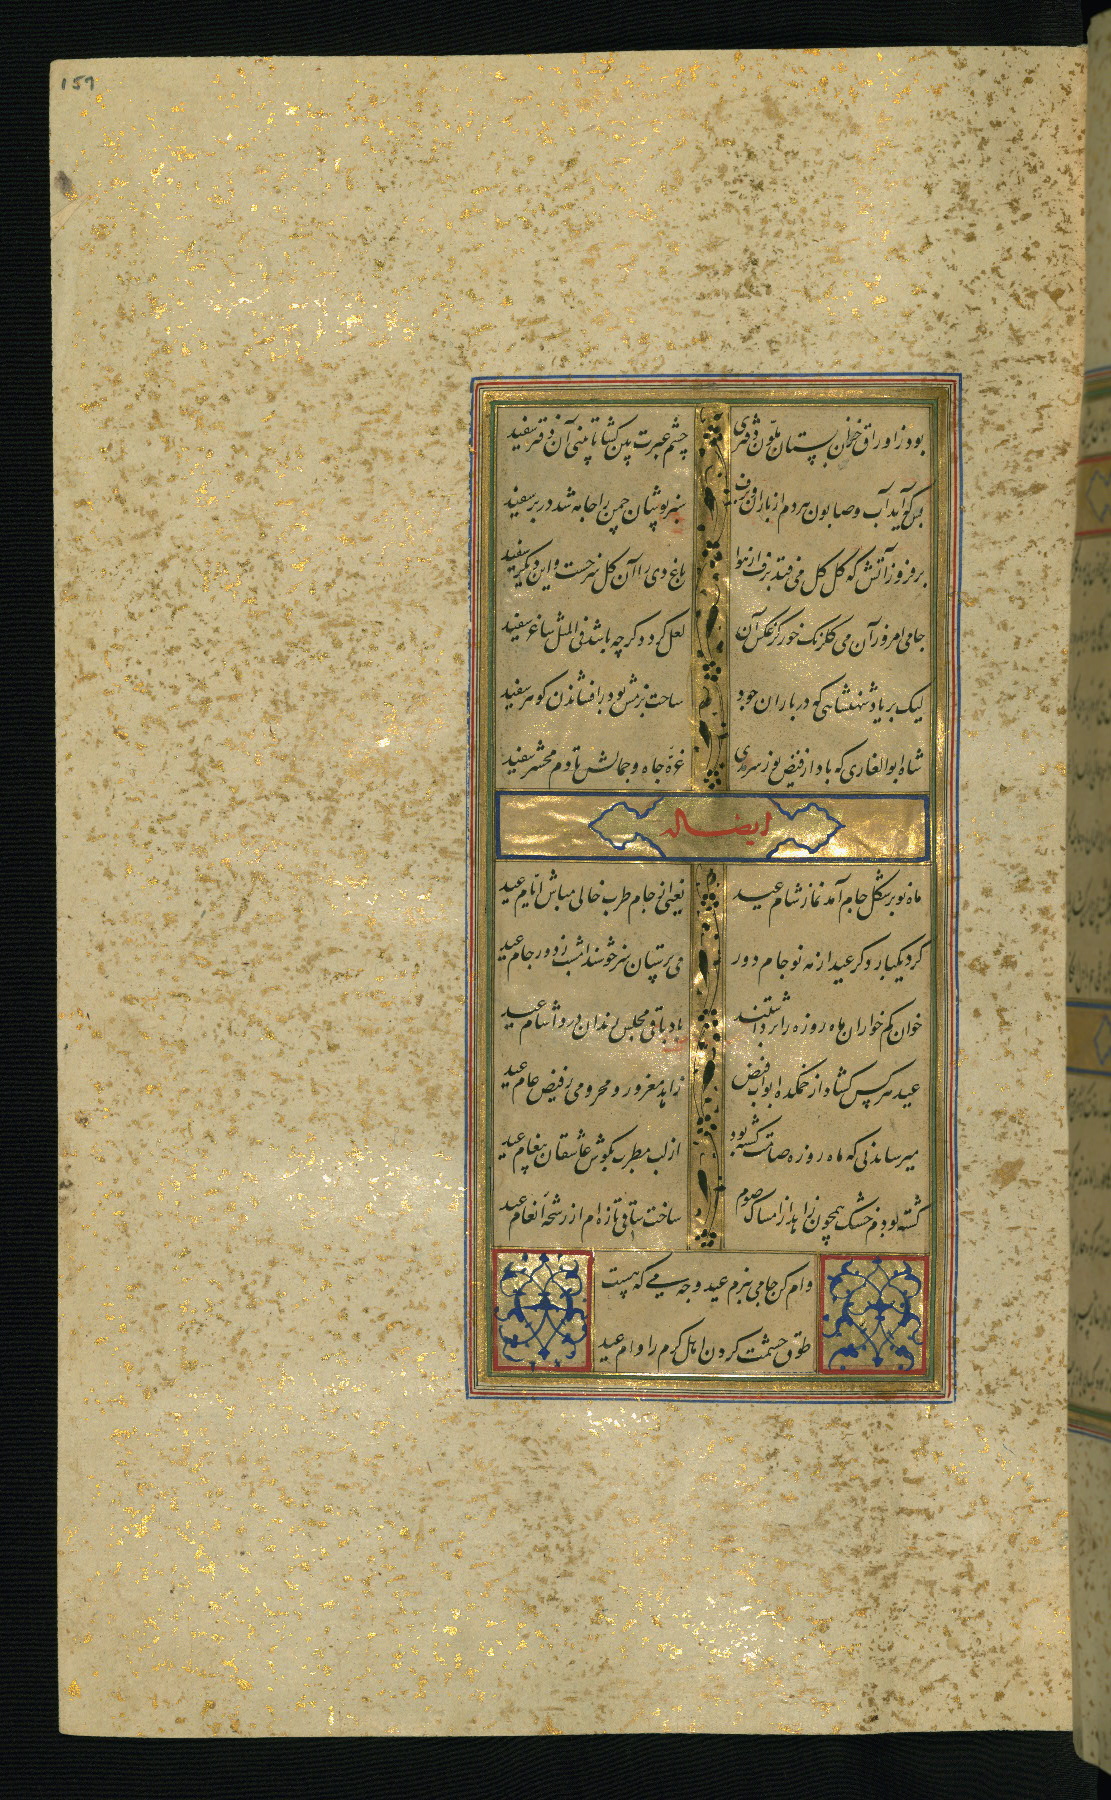 157
بود ز اوراق خزان بستان ملون دفتری
چشم عبرت بین کشا تا بینی آن دفتر سفید
بس که آید آب و صابون هر دم از باران و برف
سبز پوشان چمن را جامه شد در بر سفید
بر فروز آتش که گل گل می فتد برف از هوا
باغ دی را آن گل سرخست و این دیگر سفید
جامی امروز آن می گلرنگ خور کز عکس آن
لعل کردد کرچه باشد فی المثل ساغر سفید
لیک بر یاد شهنشاهی که در باران جود
ساحت بزمش بود ز افشاندن کوهر سفید
شاه ابوالغازی که باد از فیض نور سرمدی
غره جاه و جمالش تا دم محشر سفید
ایضا له
ماه نو بر شکل جام آمد نماز شام عید
یعنی از جام طرب خالی مباش ایام عید
کرد یکبار دکر عید از مه نو جام دور
می پرستان سرخوشند امشب ز دور جام عید
خوان کم خواران ماه روزه را برداشتند
باد باقی مجلس رندان درد آشام عید
عید هر کس کشاد از خمکده ابواب فیض
زاهد مغرور و محرومی ز فیض عام عید
میرساند نی که ماه روزه صامت کشته بود
از لب مطرب بکوش عاشقان پیغام عید
کشته بودم خشک همچون زاهد از امساک صوم
ساخت ساقی تازه ام از رشحه انعام عید
وام کن جامی ببزم عید وجه می که هست
طوق حشمت کردن اهل کرم را وام عید